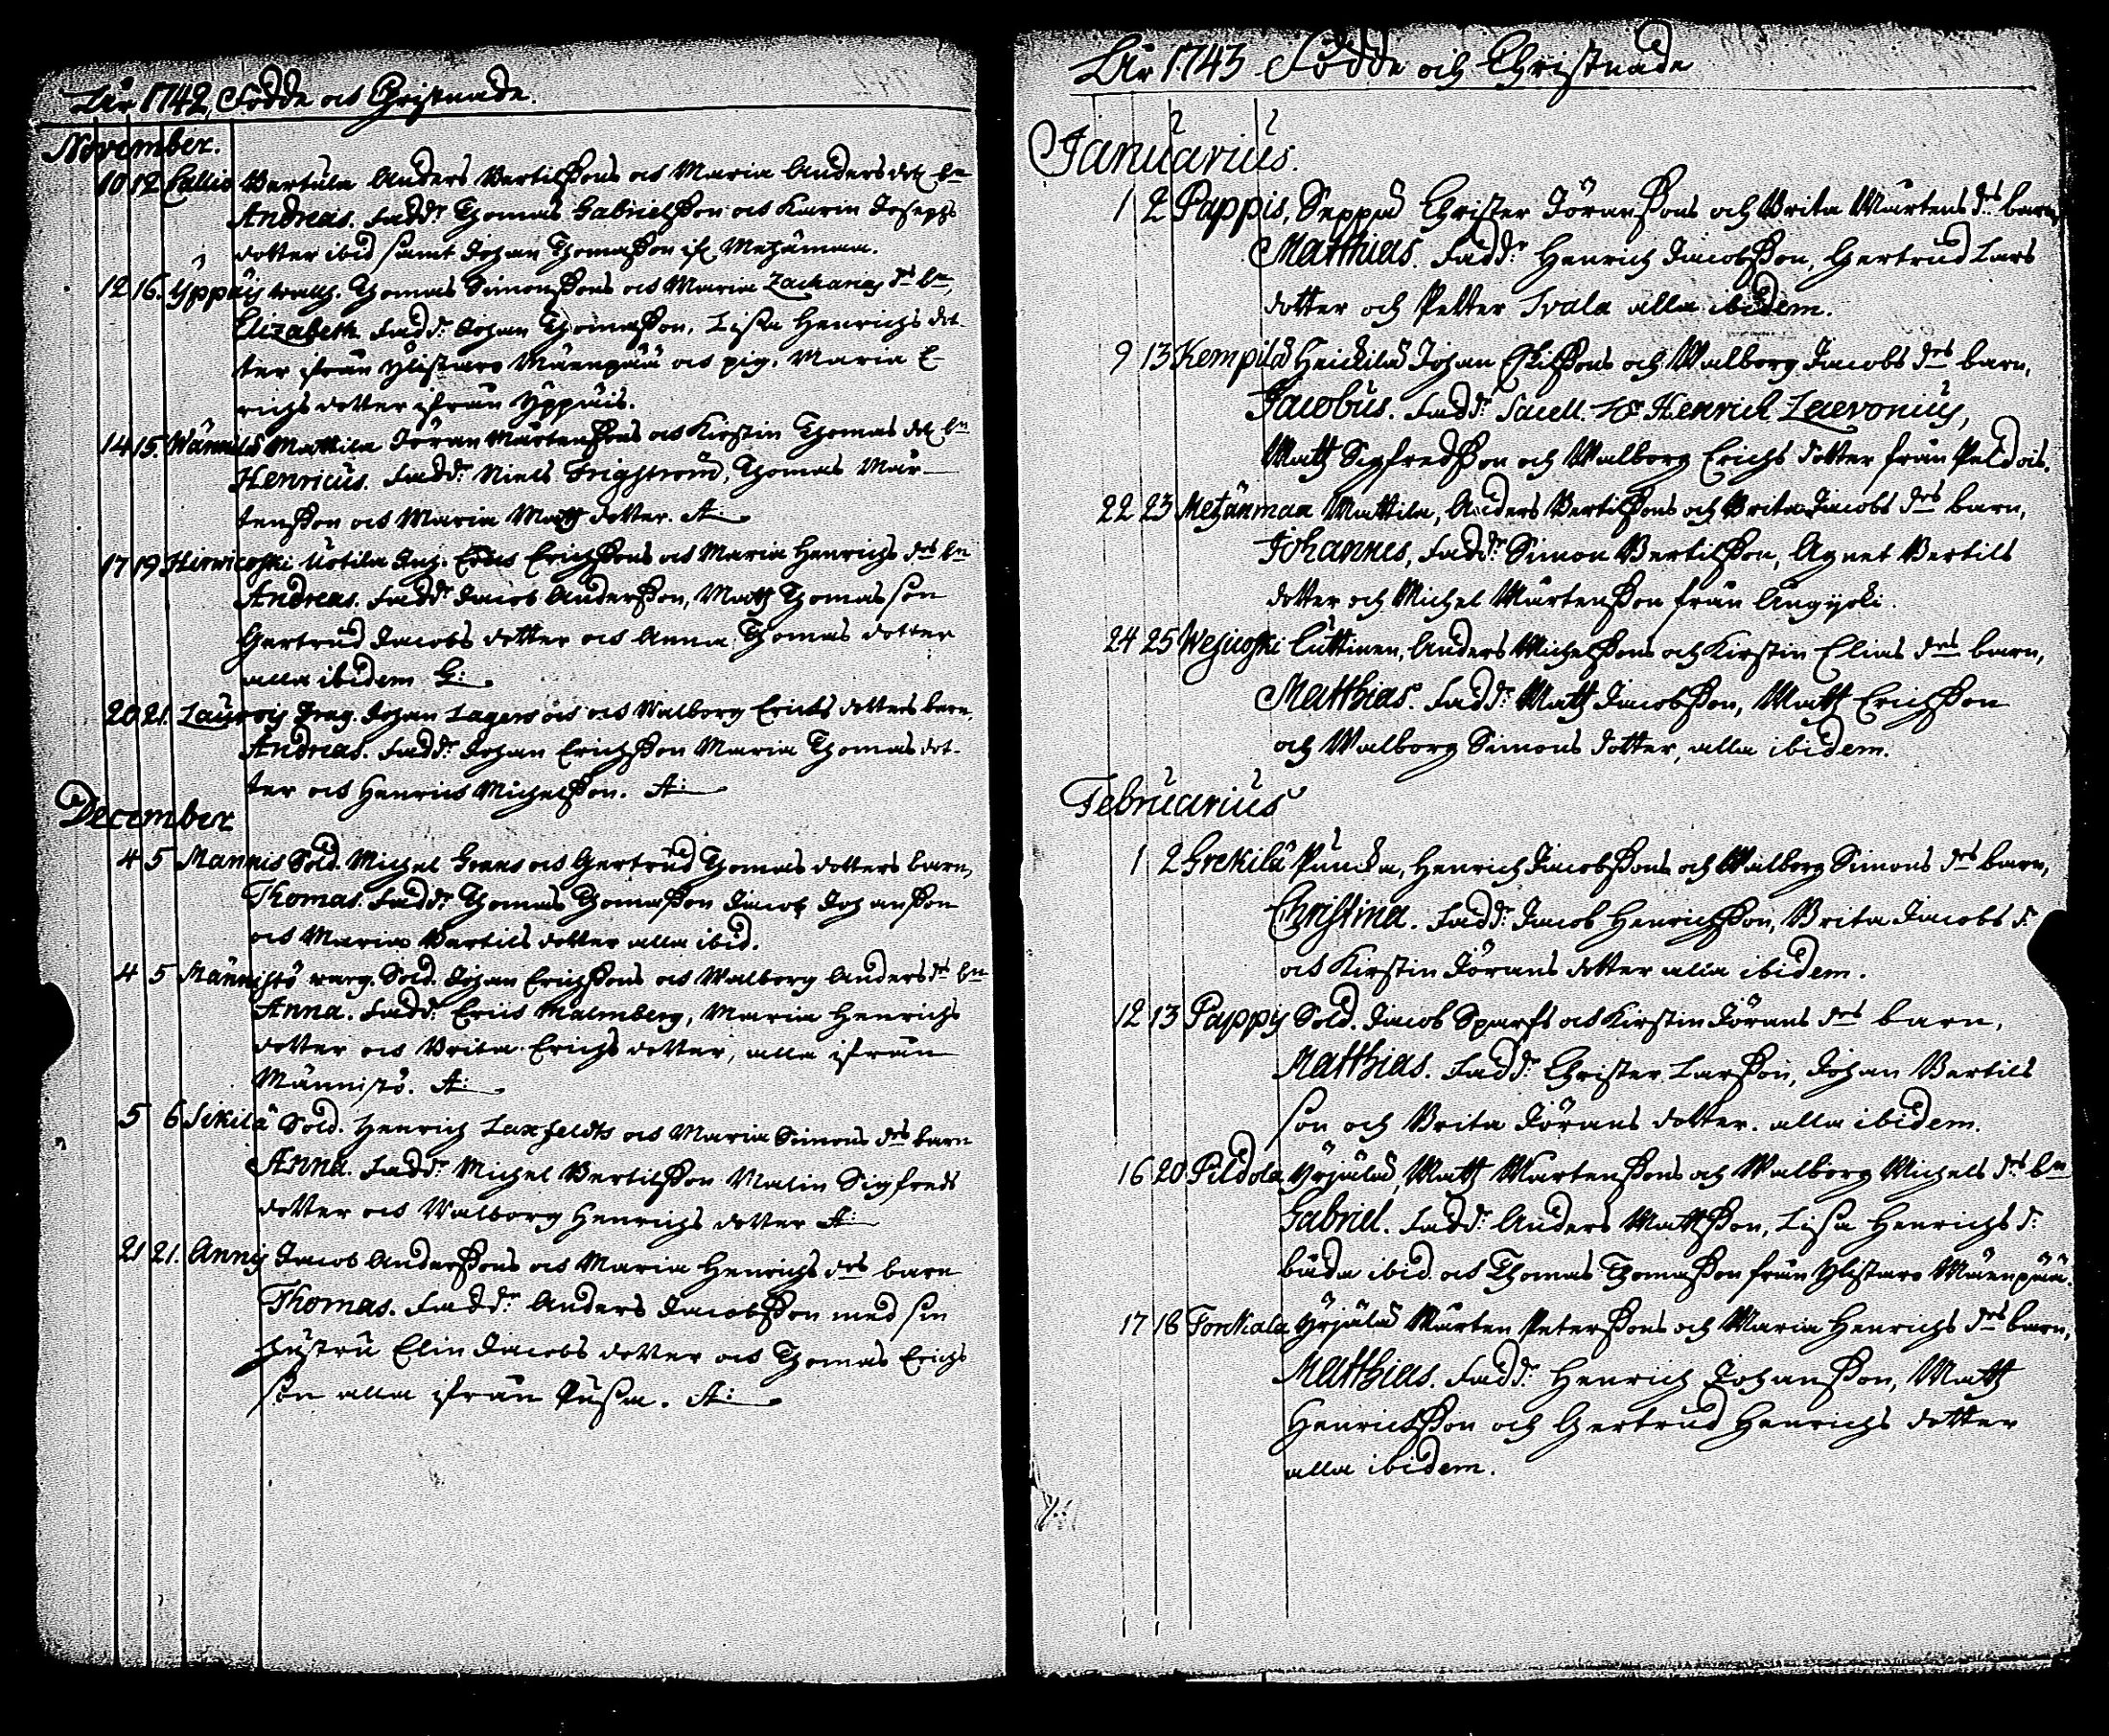 Åhr 1742, Födde och Christnade.
November.
10 12 Callio Bertula Anders Bertilssons och Maria Anders dot. bn
Andreas. Fadd:r Thomas Gabrielsson och Karin Josephs
dotter ibid samt Johan Thomasson if. Metzämaa.
12 16. Yppäis Thomas Simonssons och Maria Zacharias d:rs b:n,
Elizabeth. Fadd:r Johan Thomasson, Lisa Henrichs dot-
ter ifrån Ylistaro Mäenpää och pig. Maria E-
richs dotter ifrån Yppäis.
14 15. Wännilä Mattila Jöran Mårtenssons och Kirstin Thomas dot. bn
Henricus. Fadd:r Niels Frighström, Thomas Mår-
tensson och Maria Matts dotter. A:
17 19 Hirwicoski Uotila Erich Erichssons och Maria Henrichs d:rs b:n
Andreas. Fadd:r Jacob Andersson, Matts Thomas son
Gertrud Jacobs dotter och Anna Thomas dotter
alla ibidem
20 21. Laurois Drag. Johan Lagers och Walborg Erichs dotters barn,
Andreas. Fadd:r Johan Erichsson Maria Thomas dot-
ter och Henrich Michelsson. A:
December
4 5 Mannis Sold. Michel Grans och Gertrud Thomas dotters barn,
Thomas. Fadd:r Thomas Thomasson Jacob Johansson
och Maria Bertils dotter alla ibid.
4 5 Männistö Sold. Johan Erichssons och Walborg Anders d:rs b:n
Anna. Fadd:r Erich Malmberg, Maria Henrichs
dotter och Brita Erichs dotter, alla ifrån
Männistö. A:
5 6 Sikilä Sold. Henrich Laxfeldts och Maria Simons d:rs barn
Anna. Fadd:r Michel Bertilsson Malin Sigfreds
dotter och Walborg Henrichs dotter A:
21 21. Annis Jacob Anderssons och Maria Henrichs d:rs barn
Thomas. Fadd:r Anders Jacobsson med sin
hustru Elin Jacobs dotter och Thomas Erichs
son alla ifrån Pusa. A:
Åhr 1743 Födde och Christnade
Januarius.
1 2 Pappis, Seppä Christer Jöranssons och Brita Mårtens d:rs barn,
Matthias. Fadd:r Henrich Jacobsson, Gertrud Lars
dotter och Petter Svala alla ibidem.
9 13 Kempilä Heickilä Johan Eskilssons och Walborg Jacobs d:rs barn,
Jacobus. Fadd:r Sacell. Hr Henrich Laevonius,
Matts Sigfredsson och Walborg Erichs dotter från Peldois.
22 23 Metzänmaa Mattila, Anders Bertilssons och Brita Jacobs d:rs barn,
Johannes, Fadd:r Simon Bertilsson, Agnet Bertils
dotter och Michel Mårtensson från Anijoki.
24 25 Wesicoski Luttinen, Anders Michelssons och Kirstin Elias d:rs barn,
Matthias. Fadd:r Matts Jacobsson, Matts Erichsson
och Walborg Simons dotter, alla ibidem.
Februarius
1 2 Grekilä Puncka, Henrich Jacobssons och Walborg Simons d:rs barn,
Christina. Fadd:r Jacob Henrichsson, Brita Jacobs d:r
och Kirstin Jörans dotter alla ibidem.
12 13 Pappis Sold. Jacob Sparfs och Kirstin Jörans d:rs barn,
Matthias. Fadd:r Christer Larsson, Johan Bertils
son och Brita Jörans dotter. alla ibidem.
16 20 Pildola Yrjälä, Matts Mårtenssons och Walborg Michels d:rs b:n
Gabriel. Fadd:r Anders Mattsson, Lisa Henrichs d:r
båda ibid. och Thomas Thomasson från Ylistaro Mäenpää.
17 18 Forckala Yrjälä Mårten Peterssons och Maria Henrichs d:rs barn,
Matthias. Fadd:r Henrich Johansson, Matts
Henrichsson och Gertrud Henrichs dotter
alla ibidem.